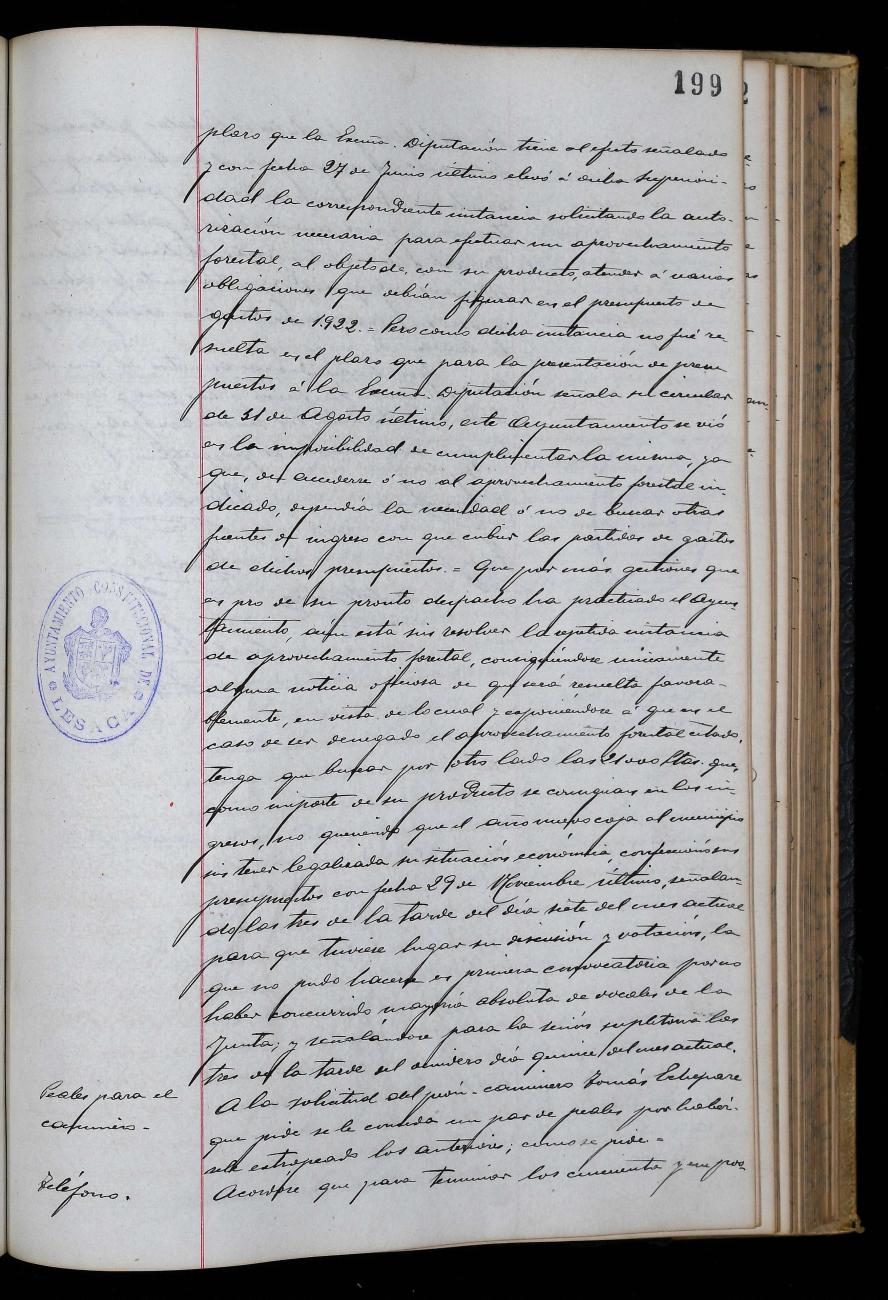 199
plazo que la Excma. Diputación tiene al efecto señalado
y con fecha 27 de Junio último elevó á dicha Superiori-
dad la correspondiente instancia solicitando la auto-
rización necesaria para efectuar un aprovechamiento
forestal, al objeto de, con su producto, atender á varias
obligaciones que debían figurar en el presupuesto de
gastos de 1922. = Pero como dicha instancia no fué re-
suelta en el plazo que para la presentación de presu-
puestos á la Excma. Diputación señala su circular
de 31 de Agosto último, este Ayuntamiento se vió
en la imposibilidad de cumplimentar la misma, ya
que, de accederse ó no al aprovechamiento forestal in-
dicado, dependía la necesidad ó no de buscar otras
fuentes de ingreso con que cubrir las partidas de gastos
de dichos presupuestos. = Que por más gestiones que
en pro de su pronto despacho ha practicado el Ayun-
tamiento, aún está sin resolver la repetida instancia
de aprovechamiento forestal, consiguiéndose únicamente
alguna noticia oficiosa de que será resuelta favora-
blemente, en vista de lo cual y exponiéndose á que en el
caso de ser denegado el aprovechamiento forestal citado,
tenga que buscar por otro lado las 21000 Ptas. que,
como importe de su producto se consignan en los in-
gresos, no queriendo que el año nuevo coja al municipio
sin tener legalizada su situación económica, confeccionó sus
presupuestos con fecha 29 de Noviembre último, señalan-
do las tres de la tarde del día siete del mes actual
para que tuviese lugar su discusión y votación, la
que no pudo hacerse en primera convocatoria por no
haber concurrido mayoría absoluta de vocales de la
Junta; y señalándose para la sesión supletoria las
tres de la tarde del venidero día quince del mes actual.
Peales para el
caminero.-
A la solicitud del peón-caminero Tomás Echepare
que pide se le conceda un par de peales por habér-
sele estropeado los anteriores; como se pide =
Teléfono.
Acordóse que para terminar los cincuenta y un pos-
AYUNTAMIENTO CONSTITUCIONAL DE
LESACA